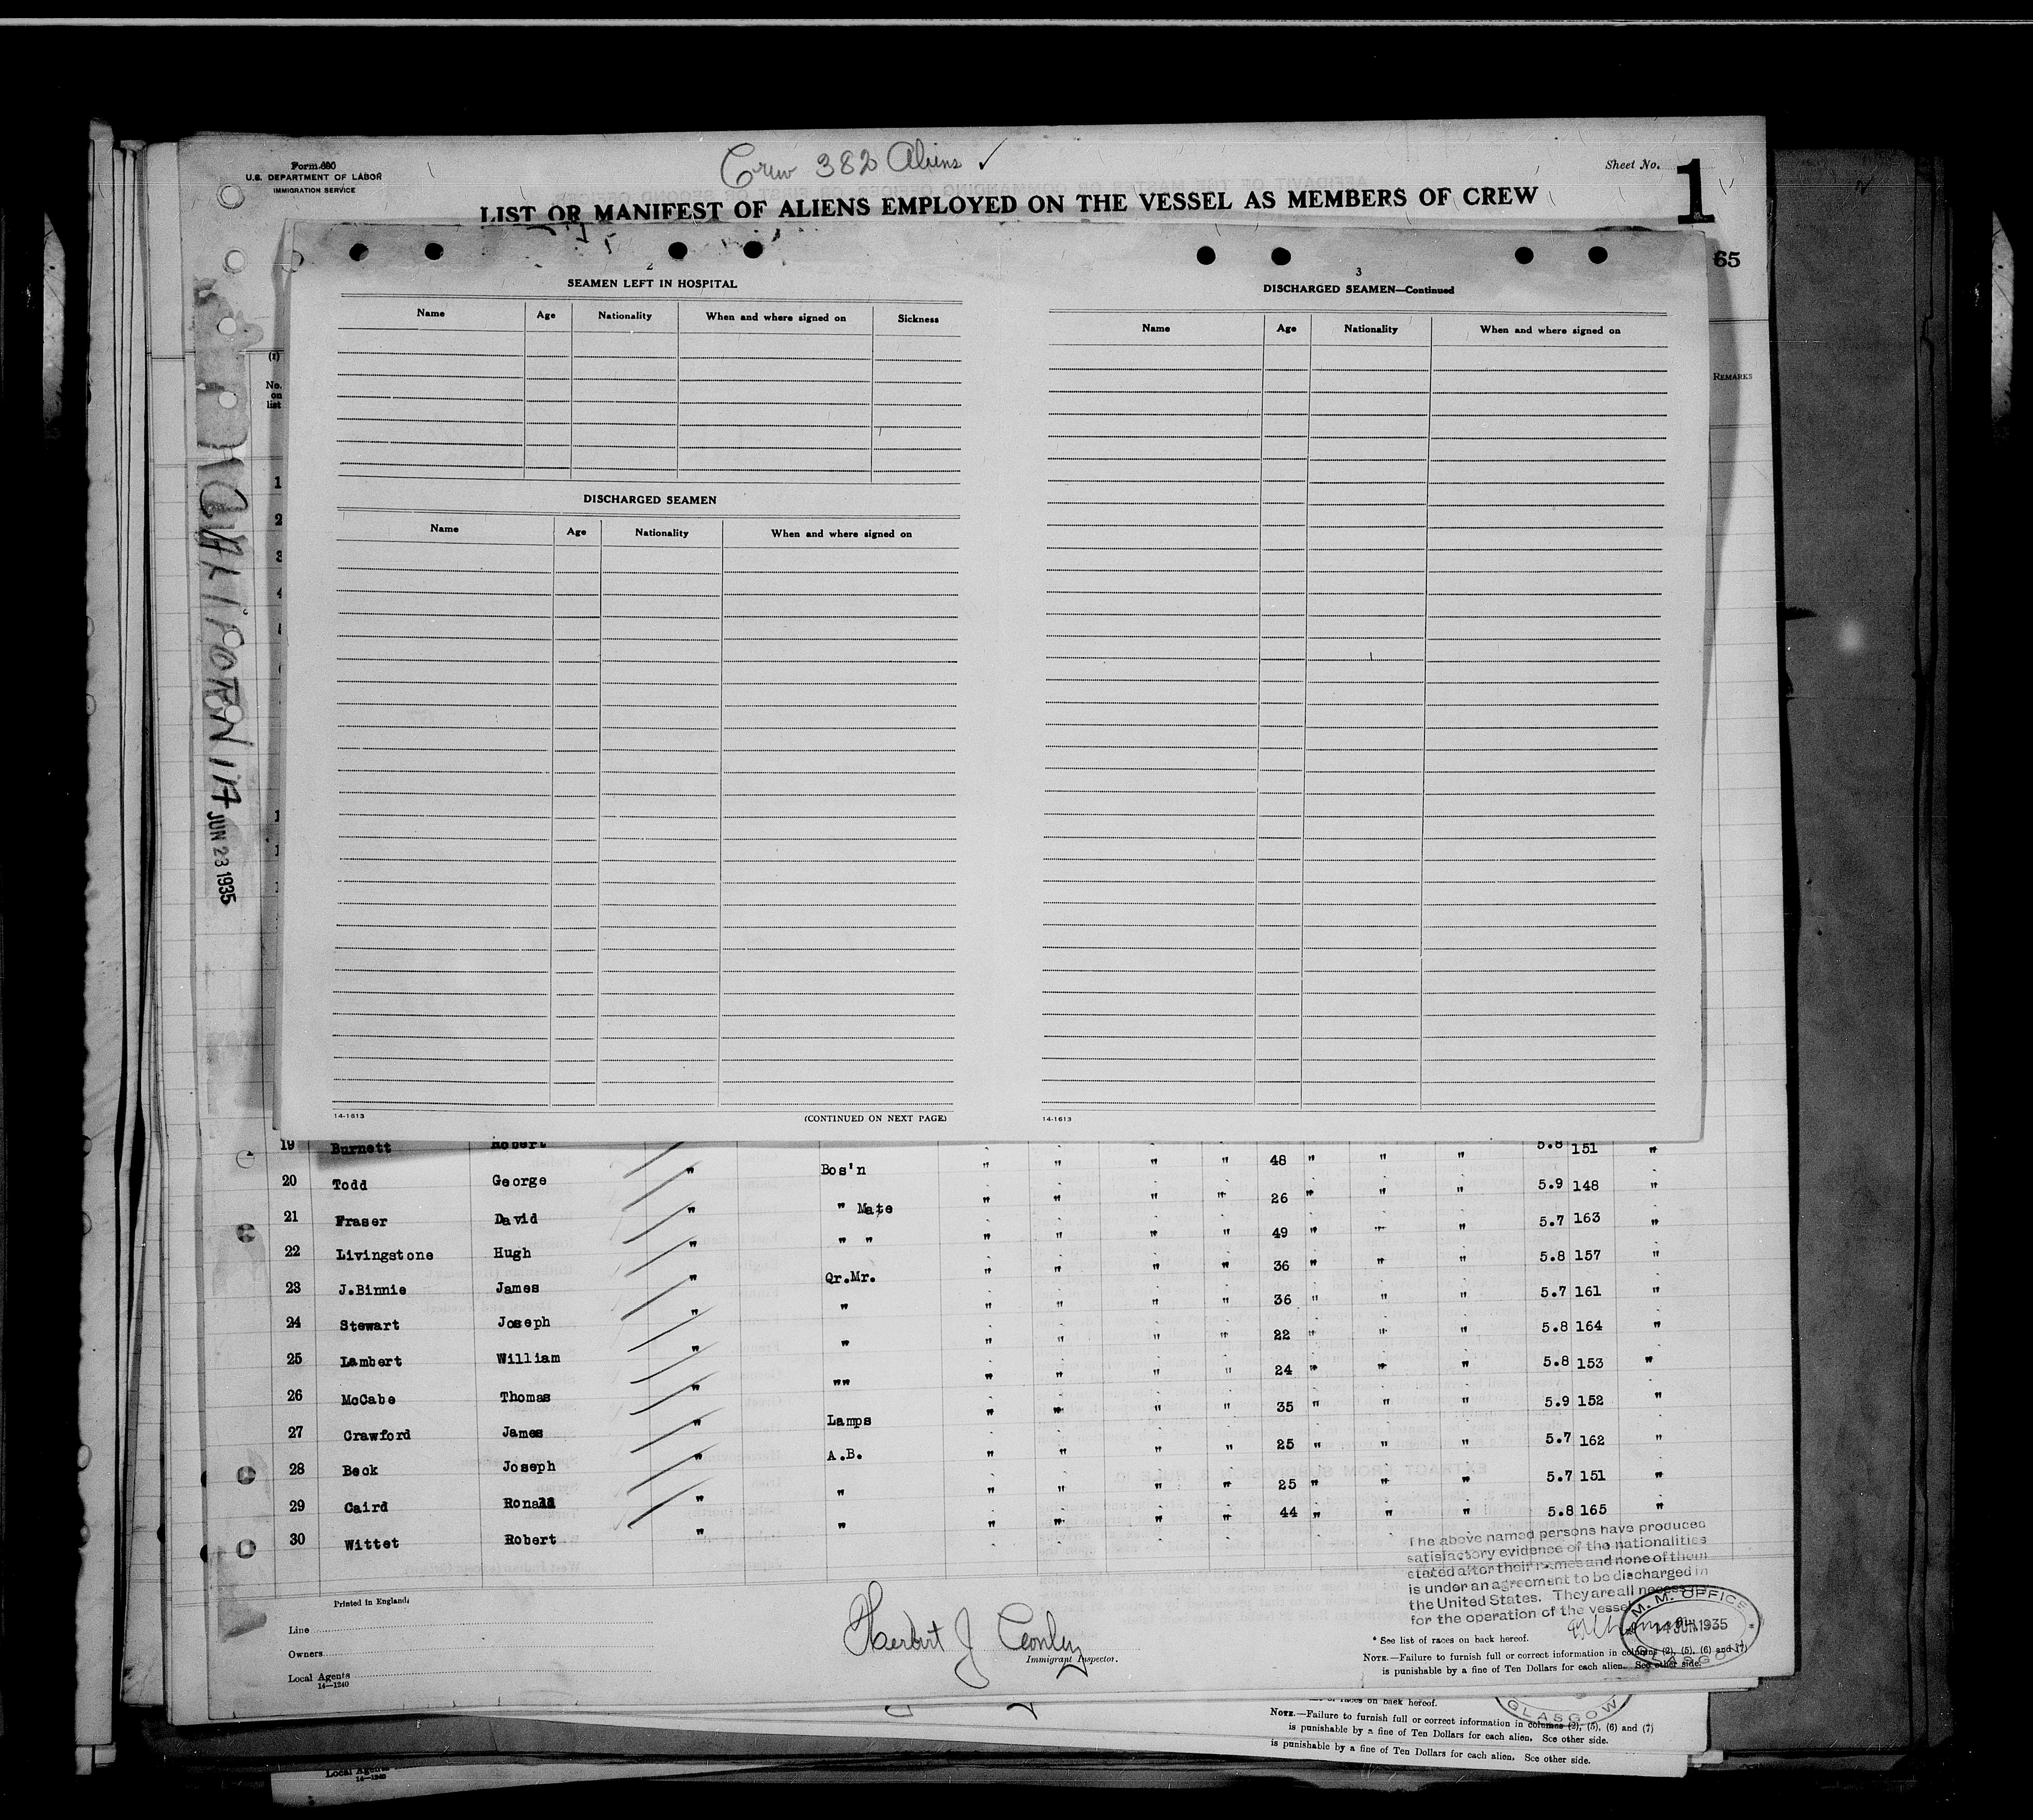 Form 680
U.S. DEPARTMENT OF LABOR
IMMIGRATION SERVICE
Crew 382 Aliens ✓
Sheet No. 1
LIST OR MANIFEST OF ALIENS EMPLOYED ON THE VESSEL AS MEMBERS OF CREW
65
(1)
No. on list
REMARKS
CALIFORNIA JUN 23 1935
2
SEAMEN LEFT IN HOSPITAL
Name Age Nationality When and where signed on Sickness
DISCHARGED SEAMEN
Name Age Nationality When and where signed on
14-1613
(CONTINUED ON NEXT PAGE)
3
DISCHARGED SEAMEN—Continued
Name Age Nationality When and where signed on
14-1613
19 Burnett Robert 5.8 151 "
20 Todd George " Bos'n " " " " 48 " " " 5.9 148 "
21 Fraser David " " Mate " " " " 26 " " " 5.7 163 "
22 Livingstone Hugh " " " " " " " 49 " " " 5.8 157 "
23 J.Binnie James " Qr.Mr. " " " " 36 " " " 5.7 161 "
24 Stewart Joseph " " " " " " 36 " " " 5.8 164 "
25 Lambert William " " " " " " 22 " " " 5.8 153 "
26 McCabe Thomas " "" " " " " 24 " " " 5.9 152 "
27 Crawford James " Lamps " " " " 35 " " " 5.7 162 "
28 Beck Joseph " A.B. " " " " 25 " " " 5.7 151 "
29 Caird Ronald " " " " " " 25 " " " 5.8 165 "
30 Wittet Robert " " " " " " 44 " " "
The above named persons have produced
satisfactory evidence of the nationalities
stated after their names and none of them
is under an agreement to be discharged in
the United States. They are all necessary
for the operation of the vessel
M. M. OFFICE
14 JUN 1935
GLASGOW
Printed in England
Line
Owners
Local Agents
14—1240
Herbert J Conley
Immigrant Inspector.
* See list of races on back hereof.
NOTE.—Failure to furnish full or correct information in columns (2), (5), (6) and (7)
is punishable by a fine of Ten Dollars for each alien. See other side.
of races on back hereof.
GLASGOW
NOTE.—Failure to furnish full or correct information in columns (2), (5), (6) and (7)
is punishable by a fine of Ten Dollars for each alien. See other side.
is punishable by a fine of Ten Dollars for each alien. See other side.
Local Agents
14—1240